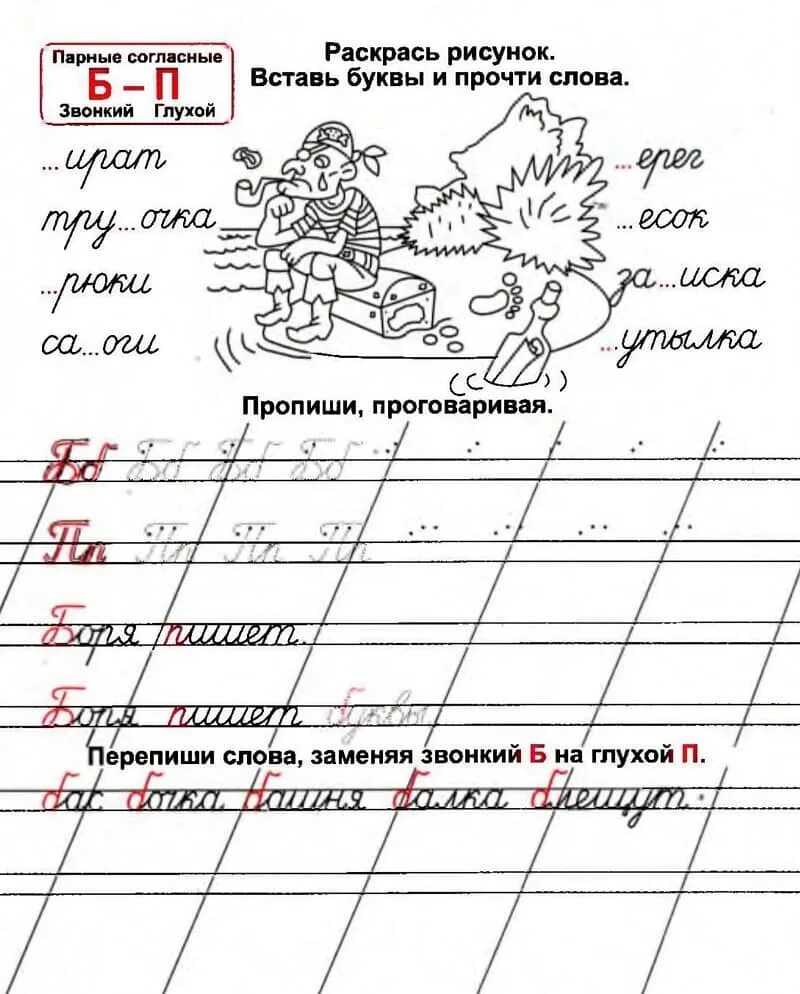 Парные согласные
Б – П
Звонкий Глухой
Раскрась рисунок.
Вставь буквы и прочти слова.
...ират
...ерег
тру...очка
...есок
...рюки
за...иска
са...оги
...утылка
Пропиши, проговаривая.
Бб Бб Бб Бб
Пп Пп Пп Пп
Боря пишет.
Боря пишет буквы.
Перепиши слова, заменяя звонкий Б на глухой П.
бас бочка башня балка блещут.